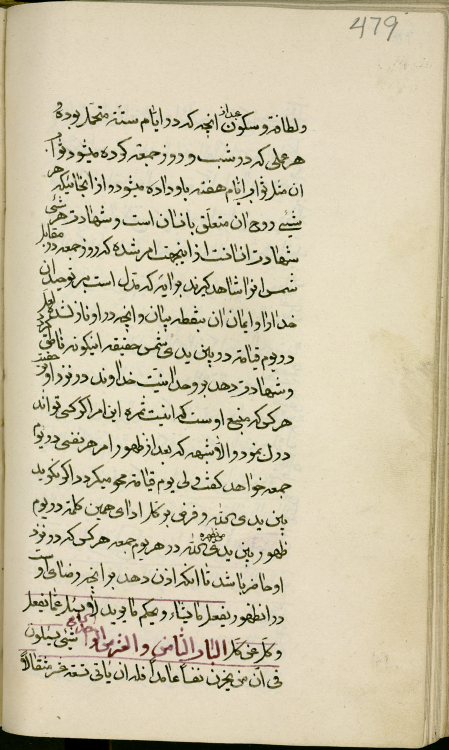 479
ولطافة وسكون بعد از انچه که در ایام ستّه متحمّل بوده و
هر عملی که در شب و روز جمعه کرده میشود ثواب
ان مثل ثواب ایام هفته باو داده میشود و از انجائیکه هر
شیئی روح ان متعلّق بانسان است و شهادت هر شیئی
شهادت انسانست از اینجهت امر شده که روز جمعه در مقابل
شمس افرا شاهد گیرند برایه که مدل است بر توحید ان
خداوند را و ایمان ان بنقطه بیان و انچه در او نازل شده لعل
در یوم قیامة در بین یدی شمس حقیقة اینگونه ناطق گردد
و شهادت دهد بر وحدانیت خداوند در نزد او حقیقت
هر کس که منبع اوست که اینست ثمره این امر اگر کسی تواند
درک نمود والّا شبهه که بعد از ظهور امر هر نفسی در یوم
جمعه خواهد گفت ولی یوم قیامة محو میگردد اگر نگوید
بین یدی الله و فرقی بر کلّ ادای همین کلمه در یوم
ظهور بین یدی من یظهره الله در هر یوم جمعه هر کس که در نزد
او حاضر باشد تا انکه اذن دهد بر انچه رضای اوست
در انظهور یفعل ما یشاء و یحکم ما یرید لا یسئل عمّا یفعل
و کلّ عن کلّ شیئی یسئلون الباب الثامن والعشر من الواحد
فی انّ من یحزن نفسا عامدا فله ان یاتی تسعة عشر مثقالا